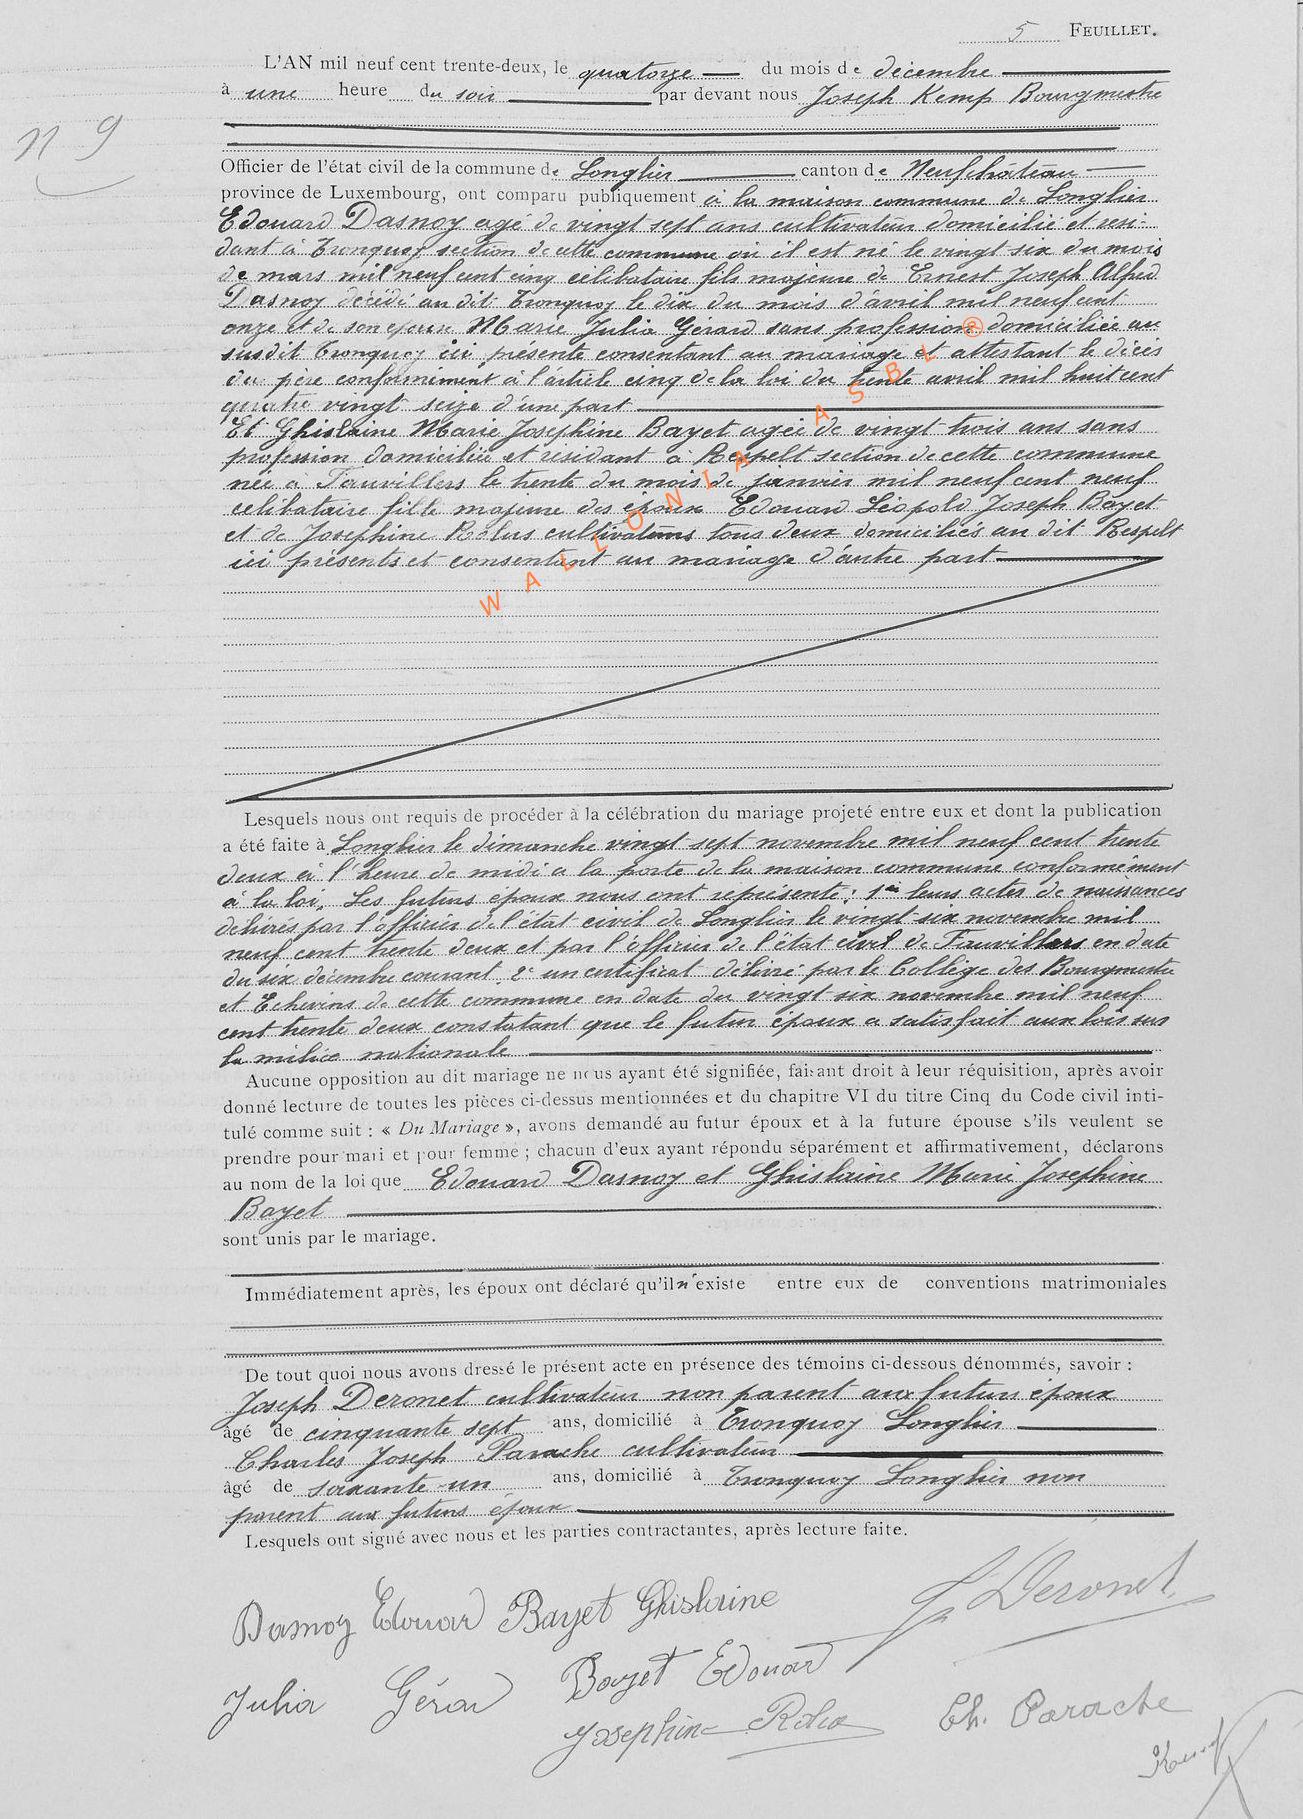 5 FEUILLET.
L'AN mil neuf cent trente-deux, le quatorze du mois de décembre
à une heure du soir par devant nous Joseph Kemp Bourgmestre
n 9
Officier de l'état civil de la commune de Longlier canton de Neufchâteau
province de Luxembourg, ont comparu publiquement à la maison commune de Longlier
Edouard Dasnoy agé de vingt sept ans cultivateur domicilié et rési-
dant à Tronquoy section de cette commune où il est né le vingt six du mois
de mars mil neuf cent cinq célibataire fils majeure de Ernest Joseph Alfred
Dasnoy décédé au dit Tronquoy le dix du mois d'avril mil neuf cent
onze et de son épouse Marie Julia Gérard sans profession domiciliée au
susdit Tronquoy ici présente consentant au mariage et attestant le décès
du père conformément à l'article cinq de la loi du trente avril mil huit cent
quatre vingt seize d'une part
Et Ghislaine Marie Joséphine Bayet agée de vingt trois ans sans
profession domiciliée et résidant à Respelt section de cette commune
née à Fauvillers le trente du mois de janvier mil neuf cent neuf
célibataire fille majeure des époux Edouard Léopold Joseph Bayet
et de Joséphine Rolus cultivateurs tous deux domiciliés au dit Respelt
ici présents et consentant au mariage d'autre part
WALLONIA ASBL ®
Lesquels nous ont requis de procéder à la célébration du mariage projeté entre eux et dont la publication
a été faite à Longlier le dimanche vingt sept novembre mil neuf cent trente
deux à l'heure de midi a la porte de la maison commune conformément
à la loi. Les futurs époux nous ont représenté : 1° leurs actes de naissances
délivrés par l'officier de l'état civil de Longlier le vingt-six novembre mil
neuf cent trente deux et par l'officier de l'état civil de Fauvillers en date
du six décembre courant 2° un certificat délivré par le Collège des Bourgmestre
et Echevins de cette commune en date du vingt six novembre mil neuf
cent trente deux constatant que le futur époux a satisfait aux lois sur
la milice nationale
Aucune opposition au dit mariage ne nous ayant été signifiée, faisant droit à leur réquisition, après avoir
donné lecture de toutes les pièces ci-dessus mentionnées et du chapitre VI du titre Cinq du Code civil inti-
tulé comme suit : « Du Mariage », avons demandé au futur époux et à la future épouse s'ils veulent se
prendre pour mari et pour femme ; chacun d'eux ayant répondu séparément et affirmativement, déclarons
au nom de la loi que Edouard Dasnoy et Ghislaine Marie Joséphine
Bayet
sont unis par le mariage.
Immédiatement après, les époux ont déclaré qu'il n'existe entre eux de conventions matrimoniales
De tout quoi nous avons dressé le présent acte en présence des témoins ci-dessous dénommés, savoir :
Joseph Deronet cultivateur non parent aux futurs époux
âgé de cinquante sept ans, domicilié à Tronquoy Longlier
Charles Joseph Parache cultivateur
âgé de soixante-un ans, domicilié à Tronquoy Longlier non
parent aux futurs époux
Lesquels ont signé avec nous et les parties contractantes, après lecture faite.
Dasnoy Edouard Bayet Ghislaine J Deronet
Julia Gérard Bayet Edouard
Joséphine Ch. Parache